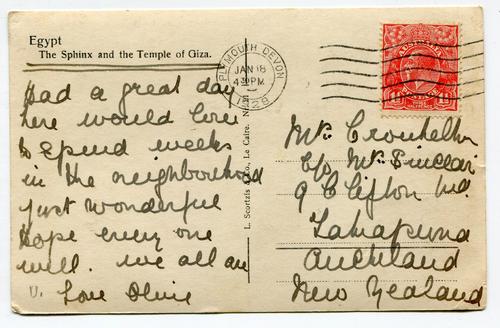 Egypt
The Sphinx and the Temple of Giza.
Had a great day
here would love
to spend weeks
in the neighborhood
just wonderful
hope every one
well. we all are
Love Olive
L. Scortzis & Co., Le Caire.
PLYMOUTH DEVON
JAN 18
1928
AUSTRALIA
Mr
C/o Mr Sinclair
9 Clifton Rd.
Takapuna
Auckland
New Zealand